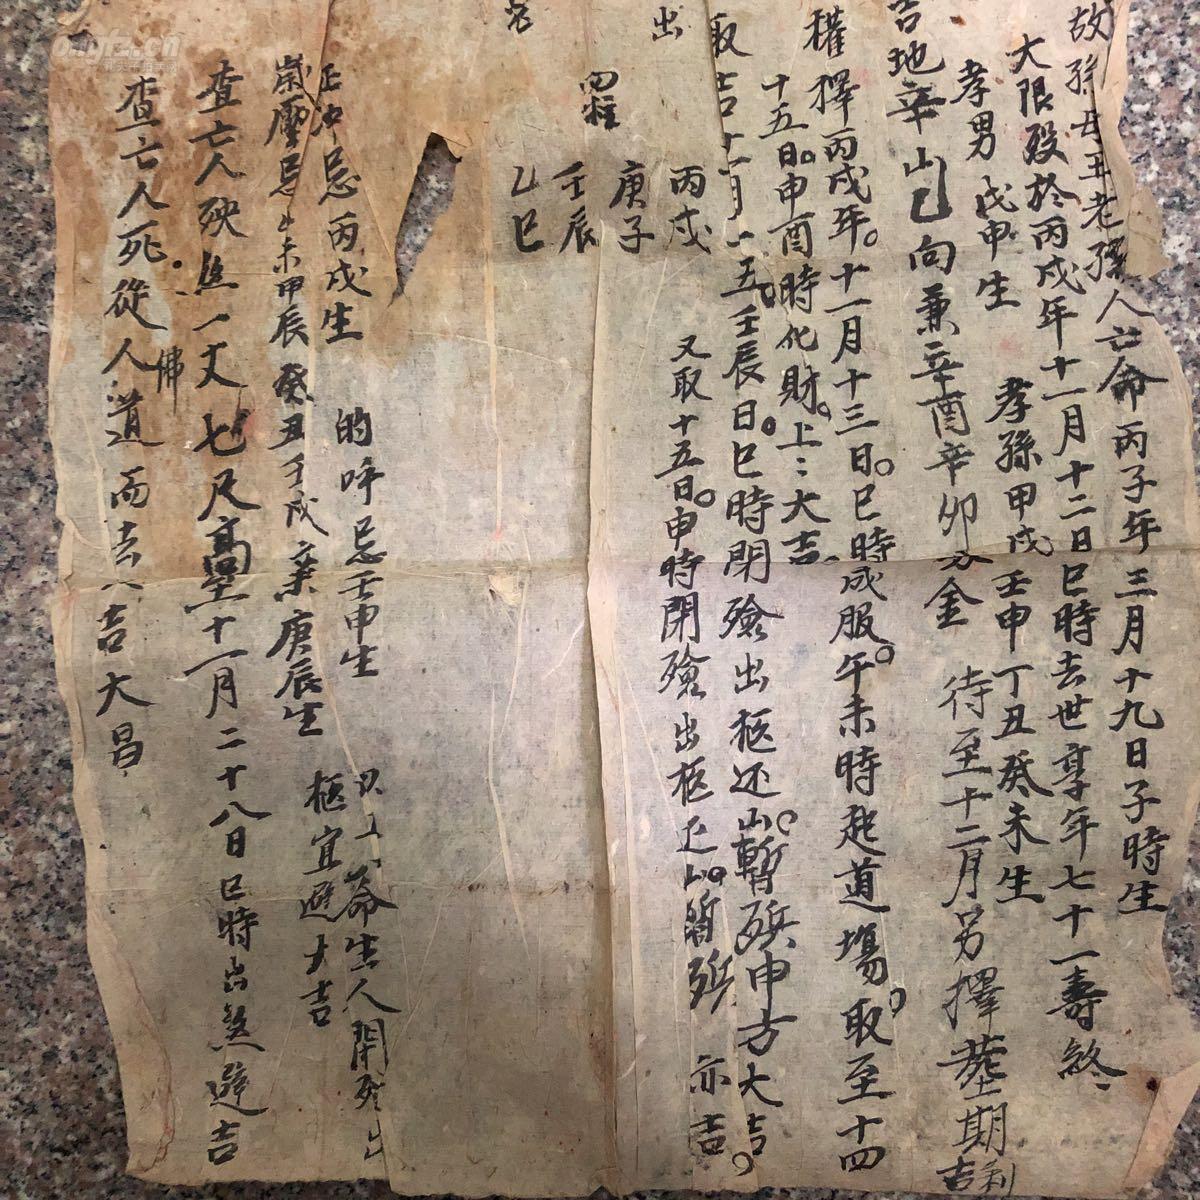 故孫母王老孺人亡命丙子年三月十九日子時生
大限殁於丙戌年十一月十二日巳時去世享年七十一壽終
孝男 戊申生 孝孫甲戌壬申丁丑癸未生
吉地辛山乙向兼辛酉辛卯分金 待至十二月另擇塟期
吉利
權擇丙戌年。十一月十三日。巳時成服。午未時起道塲。取至十四
十五日。申酉時化財。上〻大吉。
取吉十一月十五。壬辰日。巳時閉殮出柩还山。暫殡申方大吉。
又取十五日。申時閉殮出柩还山。暫殡 亦吉。
出
四柱
丙戌
庚子
壬辰
乙巳
正冲忌丙戌生 的呼忌壬申生
歲壓忌 未甲辰癸丑壬戌 庚辰生
命生人閉殮出
柩宜避大吉
查亡人殃煞一丈七尺高 十一月二十八日巳時出煞避吉
佛
查亡人死。從人道而去 吉大昌